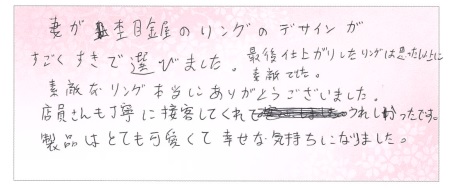 妻が杢目金屋のリングのデザインが
すごくすきで選びました。最後仕上がりしたリングは思った以上に
素敵でした。
素敵なリング本当にありがとうございました。
店員さんも丁寧に接客してくれてうれしかったです。
製品はとても可愛くて幸せな気持ちになりました。